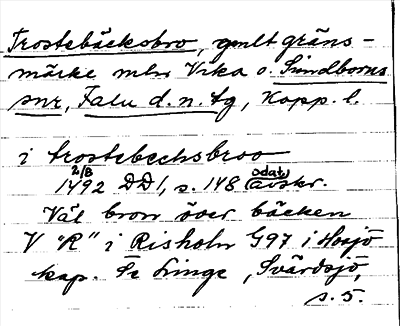 Trostebäcksbro, gmlt gräns-
märke mln Vika o. Sundborns
snr, Falu d. n. tg, Kopp. l.
i trostebechsbroo
2/8 1492 DD 1, s. 148 (odat. avskr.
Väl bron över bäcken
V "R" i Risholn G97 i Hosjö
kap. Se Linge, Svärdsjö,
s. 5.